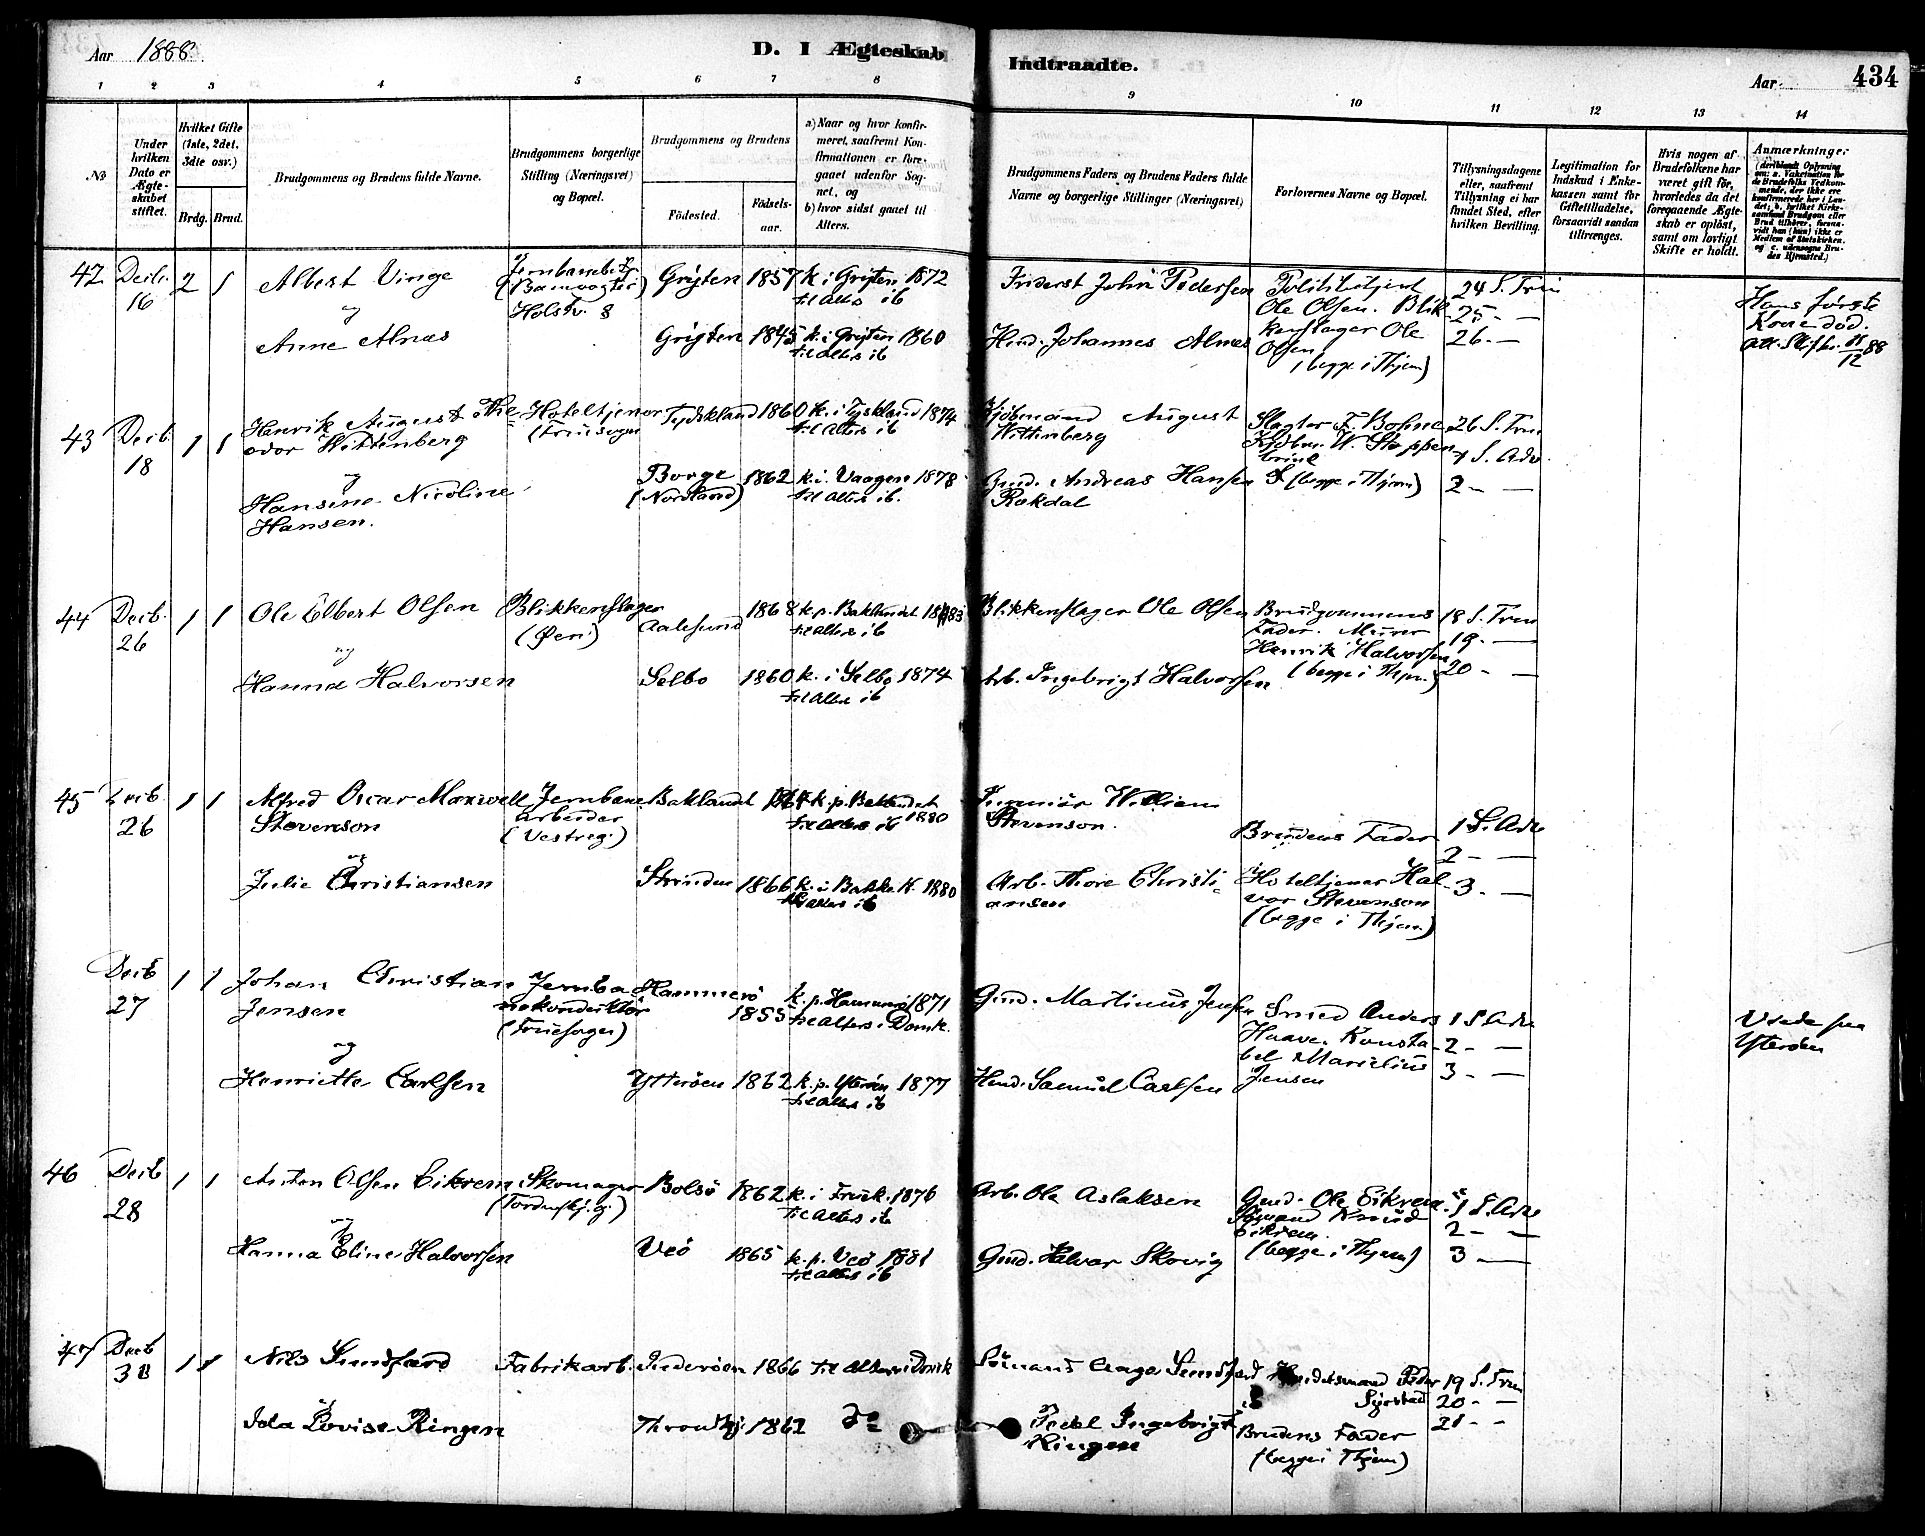 Aar 1888.
D. I Ægteskab Indtraadte.
Aar
434
1 2 3 4 5 6 7 8 9 10 11 12 13 14
No
Under hvilken Dato er Ægteskabet stiftet.
Hvilket Gifte (1ste, 2det, 3die osv.)
Brdg. Brud.
Brudgommens og Brudens fulde Navne.
Brudgommens borgerlige Stilling (Næringsvei) og Bopæl.
Brudgommens og Brudens
Födested.
Födsels-aar.
a) Naar og hvor konfirmeret, saafremt Konfirmationen er foregaaet udenfor Sognet, og
b) hvor sidst gaaet til Alters.
Brudgommens Faders og Brudens Faders fulde Navne og borgerlige Stillinger (Næringsvei)
Forlovernes Navne og Bopæl.
Tillysningsdagene eller, saafremt Tillysning ei har fundet Sted, efter hvilken Bevilling.
Legitimation for Indskud i Enkekassen samt for Giftetilladelse, forsaavidt saadan tiltrænges.
Hvis nogen af Brudefolkene har været gift för, hvorledes da det foregaaende Ægteskab er oplöst, samt om lovligt Skifte er holdt.
Anmærkninger
42 Decbr. 16 2 1
Albert Vinge
og
Anne Alnæs
Holstv. 8
Grytten 1857 k. i Grytten 1872
til Alters ib
Grytten 1845 k. i Grytten 1860
til Alters ib
John Pedersen
Johannes Alnæs
Politibetjent
Ole Olsen. Blik-
kenslager Ole
Olsen
(begge i Thjem)
24 S. Trin
25 - —
26 - —
Hans første
Kone død.
Att. Skifter. 11/12 88
43 Decbr. 18 1 1
Henrik August The-
odor Wittenberg
og
Hansine Nicoline
Hansen.
Hoteltjener
(Fruesogn
Tydskland 1860 k. i Tyskland 1874
til Alters ib
Borge
(Nordland)
1862 k. i Vaagen 1878
til Alters ib.
Kjøbmand August
Wittenberg
Gmd. Andreas Hansen
Rokdal
Slagter F. Bohne
(begge i Thjem)
26 S. Trin
1 S. Adv.
2 - —
44 Decbr. 26 1 1
Ole Elbert Olsen
og
Hanna Halvorsen
Blikkenslager
(Øeri)
Aalesund
1868 k. p. Baklandet 1883
til Alters ib
Selbo 1860 k. i Selbo 1874
til Alters ib
Blikkenslager Ole Olsen
Arb. Ingebrigt Halvorsen
Brudgommens
Fader. Murer
Henrik Halvorsen
(begge i Thjem.)
18 S. Trin
19 - —
20 - —
45 Decb. 26 1 1
Alfred Oscar Maxwell
Stevenson
og
Julie Christiansen
Jernbane
arbeider
(Vestreg.)
Baklandet k. p. Baklandet
til Alters ib 1880
Strinden 1866 k. i Bakke K. 1880
til Alters ib
William
Stevenson.
Arb. Thore Christi-
ansen
Brudens Fader
Hoteltjener Hal-
vor Stevenson
(begge i Thjem.)
1 S. Adv
2 - —
3 - —
Decb 27 1 1
Johan Christian
Jensen
og
Henriette Carlsen
Jernba-
nekonduktör
(Fruesogn)
Hammerö
1855 k. p. Hammerö 1871
til Alters i Domk.
Ytterøen 1862 k. p. Ytterøen 1877
til Alters ib
Gmd. Martinus Jensen
Hmd. Samuel Carlsen
Smed Anders
Haave. Konsta-
bel Marselius
Jensen
1 S. Adv
2 - —
3 - —
Viede paa
Ytterøen
46 Decb 28 1 1
Anton Olsen Eikrem
og
Hanna Eline Halvorsen
Skomager
(Tordenskj. g.)
Bolsö 1862 k. i Fruek. 1876
til Alters ib
Veö 1865 k. p. Veö 1881
til Alters ib
Arb. Ole Aslaksen
Gmd. Halvar Skovig
Gmd. Ole Eikrem
Knud
Eikrem.
(begge i Thjem)
1 S. Adv
2 - —
3 —
47 Decb 30 1 1
Nils Sundfærd
og
Ida Lovise Ringen
Fabrikarb. Inderøen 1866 til Alters i Domk
Throndhj 1862 do
Sömand Aage Sundfærd
Ingebrigt
Ringen
Handelsmand Peder
Brudens Fader
(begge i Thjem)
19 S. Trin
20 - —
21 - -